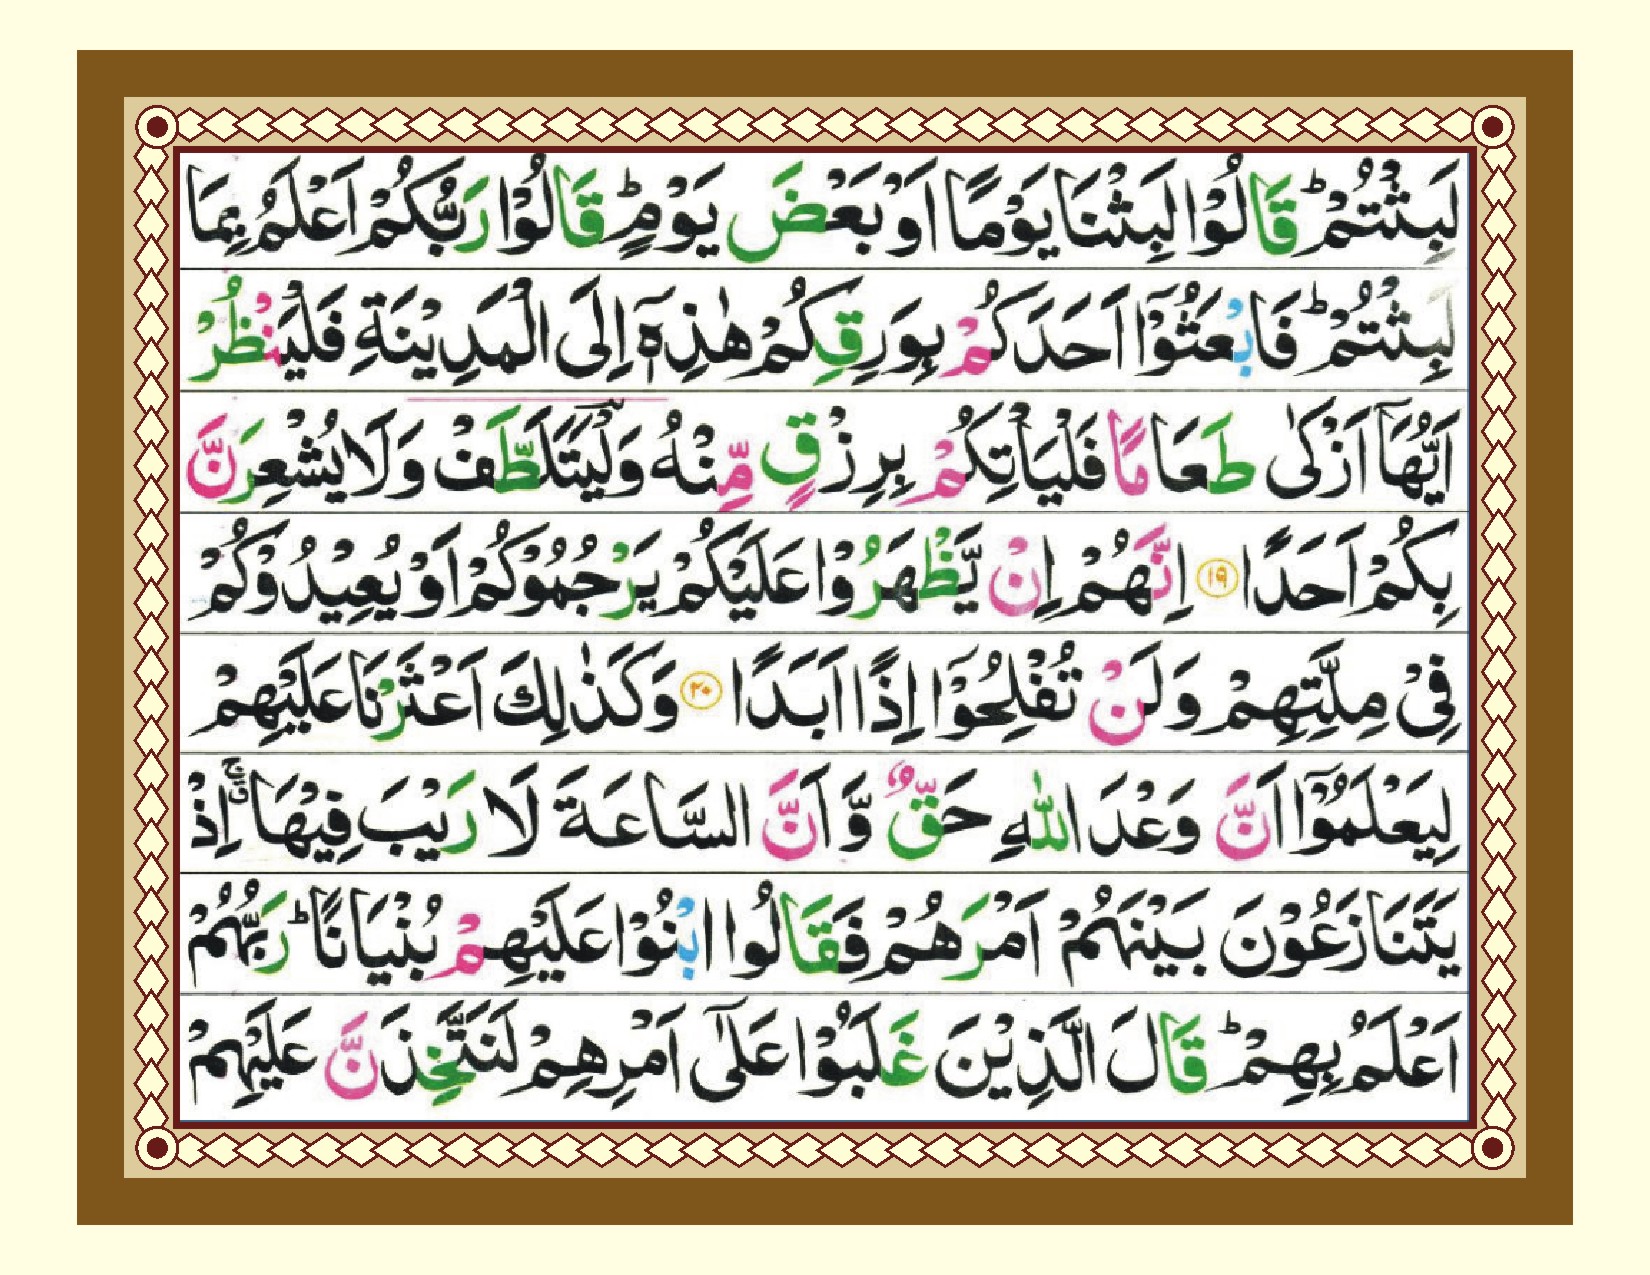 لَبِثْتُمْ ؕ قَالُوْا لَبِثْنَا يَوْمًا اَوْ بَعْضَ يَوْمٍ ؕ قَالُوْا رَبُّكُمْ اَعْلَمُ بِمَا
لَبِثْتُمْ ؕ فَابْعَثُوْۤا اَحَدَكُمْ بِوَرِقِكُمْ هٰذِهٖۤ اِلَى الْمَدِيْنَةِ فَلْيَنْظُرْ
اَيُّهَاۤ اَزْكٰى طَعَامًا فَلْيَاْتِكُمْ بِرِزْقٍ مِّنْهُ وَلْيَتَلَطَّفْ وَلَا يُشْعِرَنَّ
بِكُمْ اَحَدًا ۝۱۹ اِنَّهُمْ اِنْ يَّظْهَرُوْا عَلَيْكُمْ يَرْجُمُوْكُمْ اَوْ يُعِيْدُوْكُمْ
فِيْ مِلَّتِهِمْ وَلَنْ تُفْلِحُوْۤا اِذًا اَبَدًا ۝۲۰ وَكَذٰلِكَ اَعْثَرْنَا عَلَيْهِمْ
لِيَعْلَمُوْۤا اَنَّ وَعْدَ اللّٰهِ حَقٌّ وَّاَنَّ السَّاعَةَ لَا رَيْبَ فِيْهَا ۚ اِذْ
يَتَنَازَعُوْنَ بَيْنَهُمْ اَمْرَهُمْ فَقَالُوا ابْنُوْا عَلَيْهِمْ بُنْيَانًا ؕ رَبُّهُمْ
اَعْلَمُ بِهِمْ ؕ قَالَ الَّذِيْنَ غَلَبُوْا عَلٰۤى اَمْرِهِمْ لَنَتَّخِذَنَّ عَلَيْهِمْ